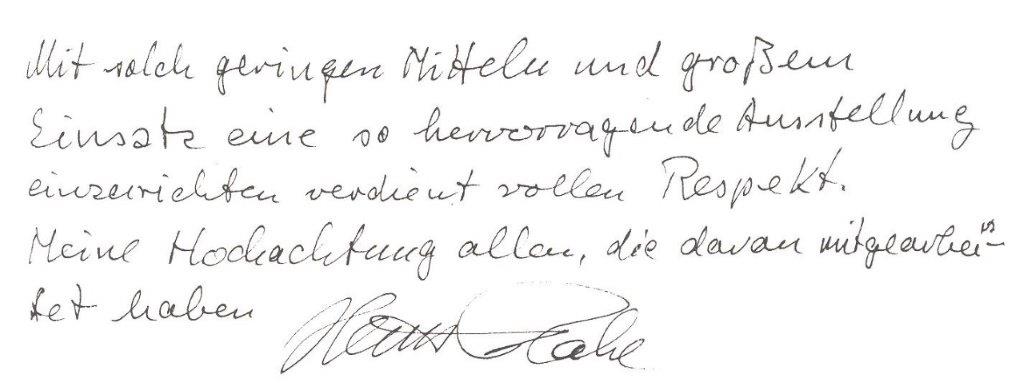 Mit solch geringen Mitteln und großem
Einsatz eine so hervorragende Ausstellung
einzurichten verdient vollen Respekt.
Meine Hochachtung allen, die daran mitgearbei-
tet haben